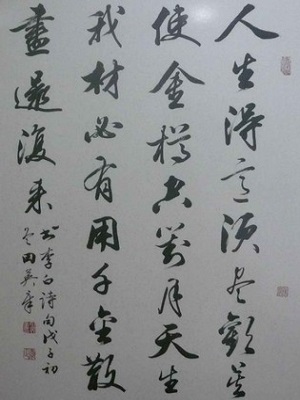 人生得意须尽歡莫
使金樽空對月天生
我材必有用千金散
盡還復来
书李白诗句戊子初
冬田英章